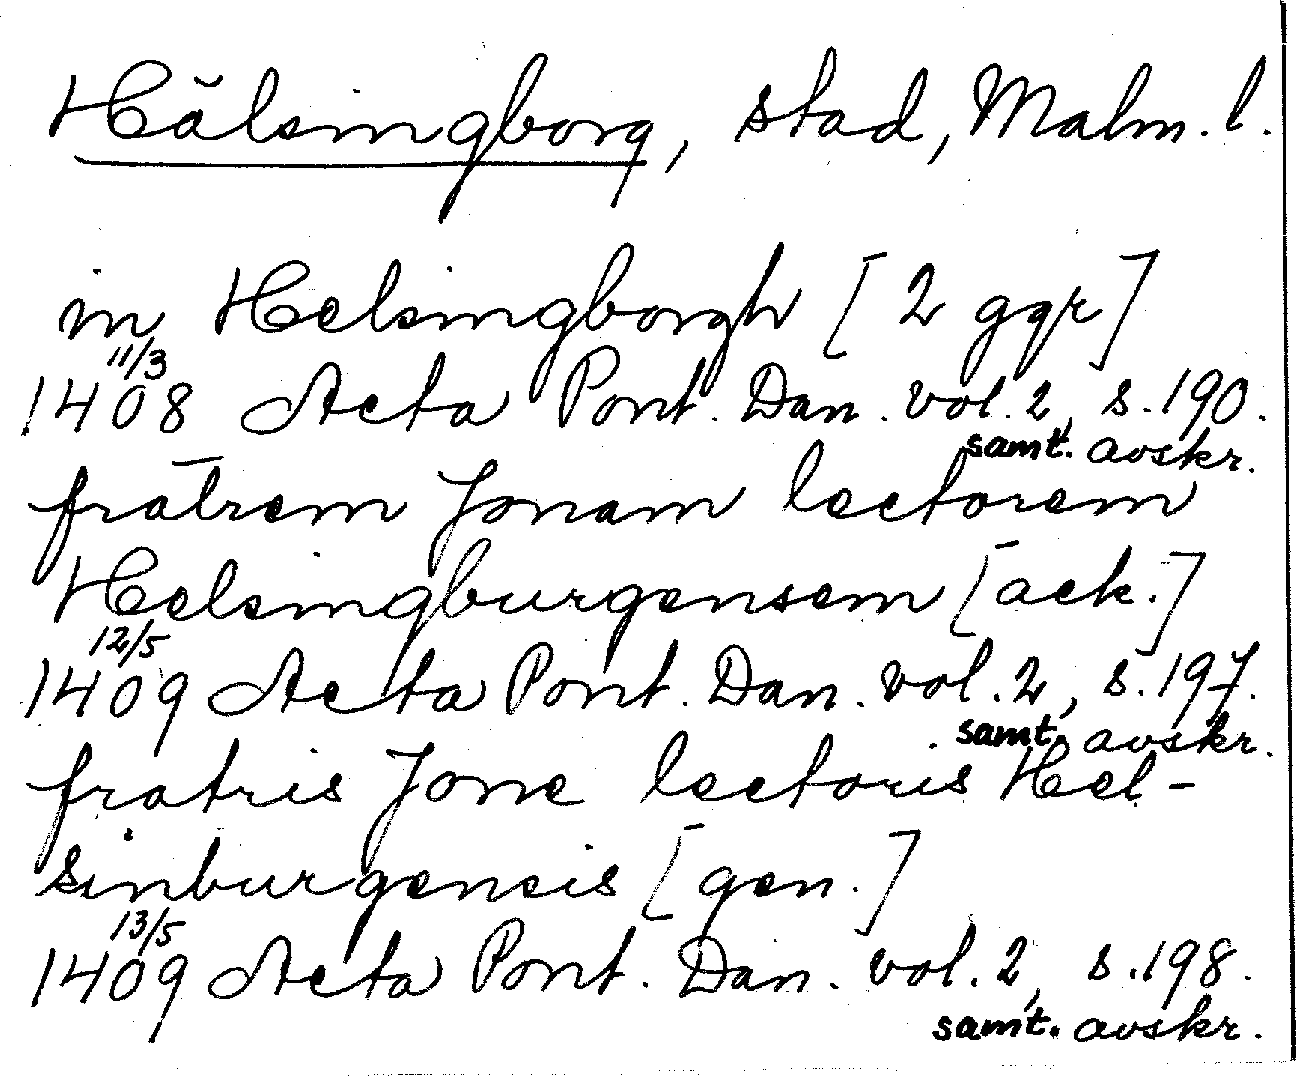 Hälsingborg, stad, Malm. l.
in Helsingborgh [2 ggr]
11/3
1408 Acta Pont. Dan. vol. 2, s. 190.
samt. avskr.
fratrem Jonam lectorem
Helsingburgensem [ack.]
12/5
1409 Acta Pont. Dan. vol. 2, s. 197.
samt. avskr.
fratris Jone lectoris Hel-
sinburgensis [gen.]
13/5
1409 Acta Pont. Dan. vol. 2, s. 198.
samt. avskr.